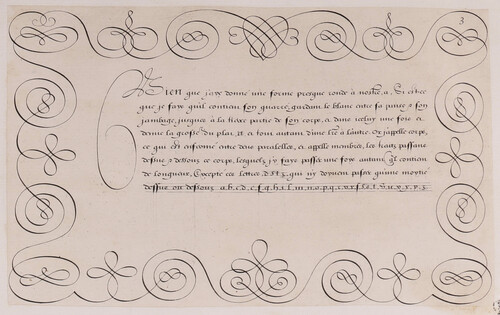 3
Bien que j'aye donné une forme presque ronde à nostre, a, Si est ce
que je fays qu'il contient son quarré, gardant le blanc entre sa pance & son
jambage, jusques à la tierce partie de son corps, et dans icelny une fois et
demie la grosse du plat, Et et tout autant d'une lre à l'autre. Or j'apelle corps,
ce qui est enfermé entre deux paralelles, et appelle membres, les traitz passans
dessus & dessous ce corps, lesquelz j'y fays passer une fois autant qu'il contient
de longueur, Excepté ces lettres, d. & t. z. qui n'y doyvent passer qu'une moytié
dessus ou dessous a.b.c.d.e.f.g.h.i.l.m.n.o.p.q.r.s.t.u.x.y.z